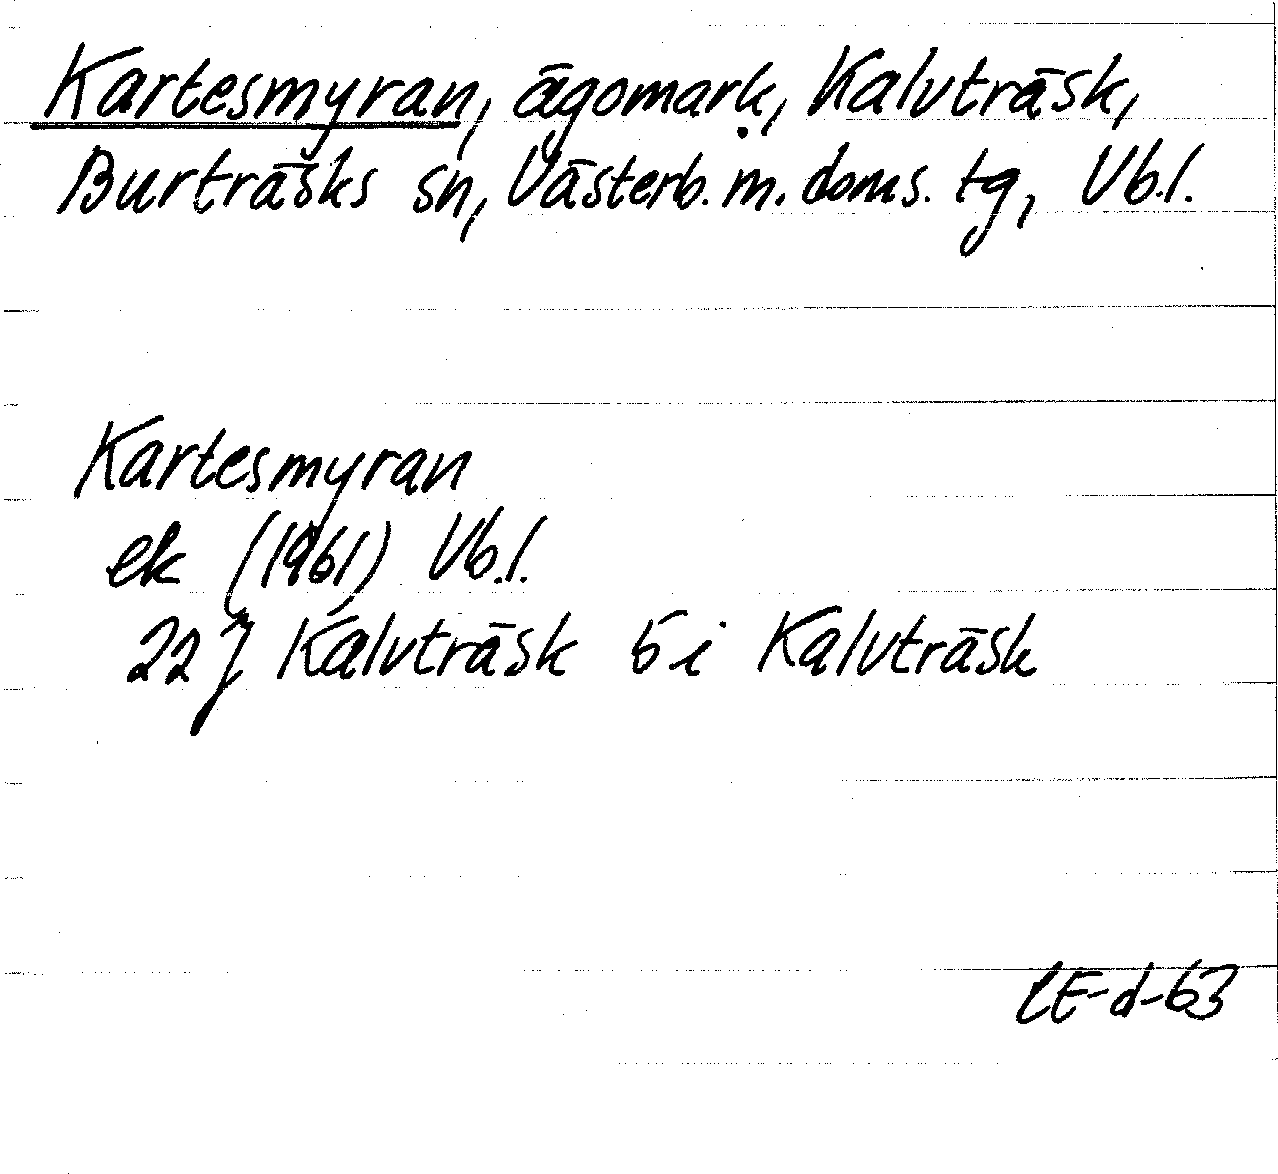 Kartesmyran, ägomark, Kalvträsk,
Burträsks sn, Västerb. m. doms. tg, Vb.l.
Kartesmyran
ek (1961) Vb.l.
22J Kalvträsk 5i Kalvträsk
CE-d-63